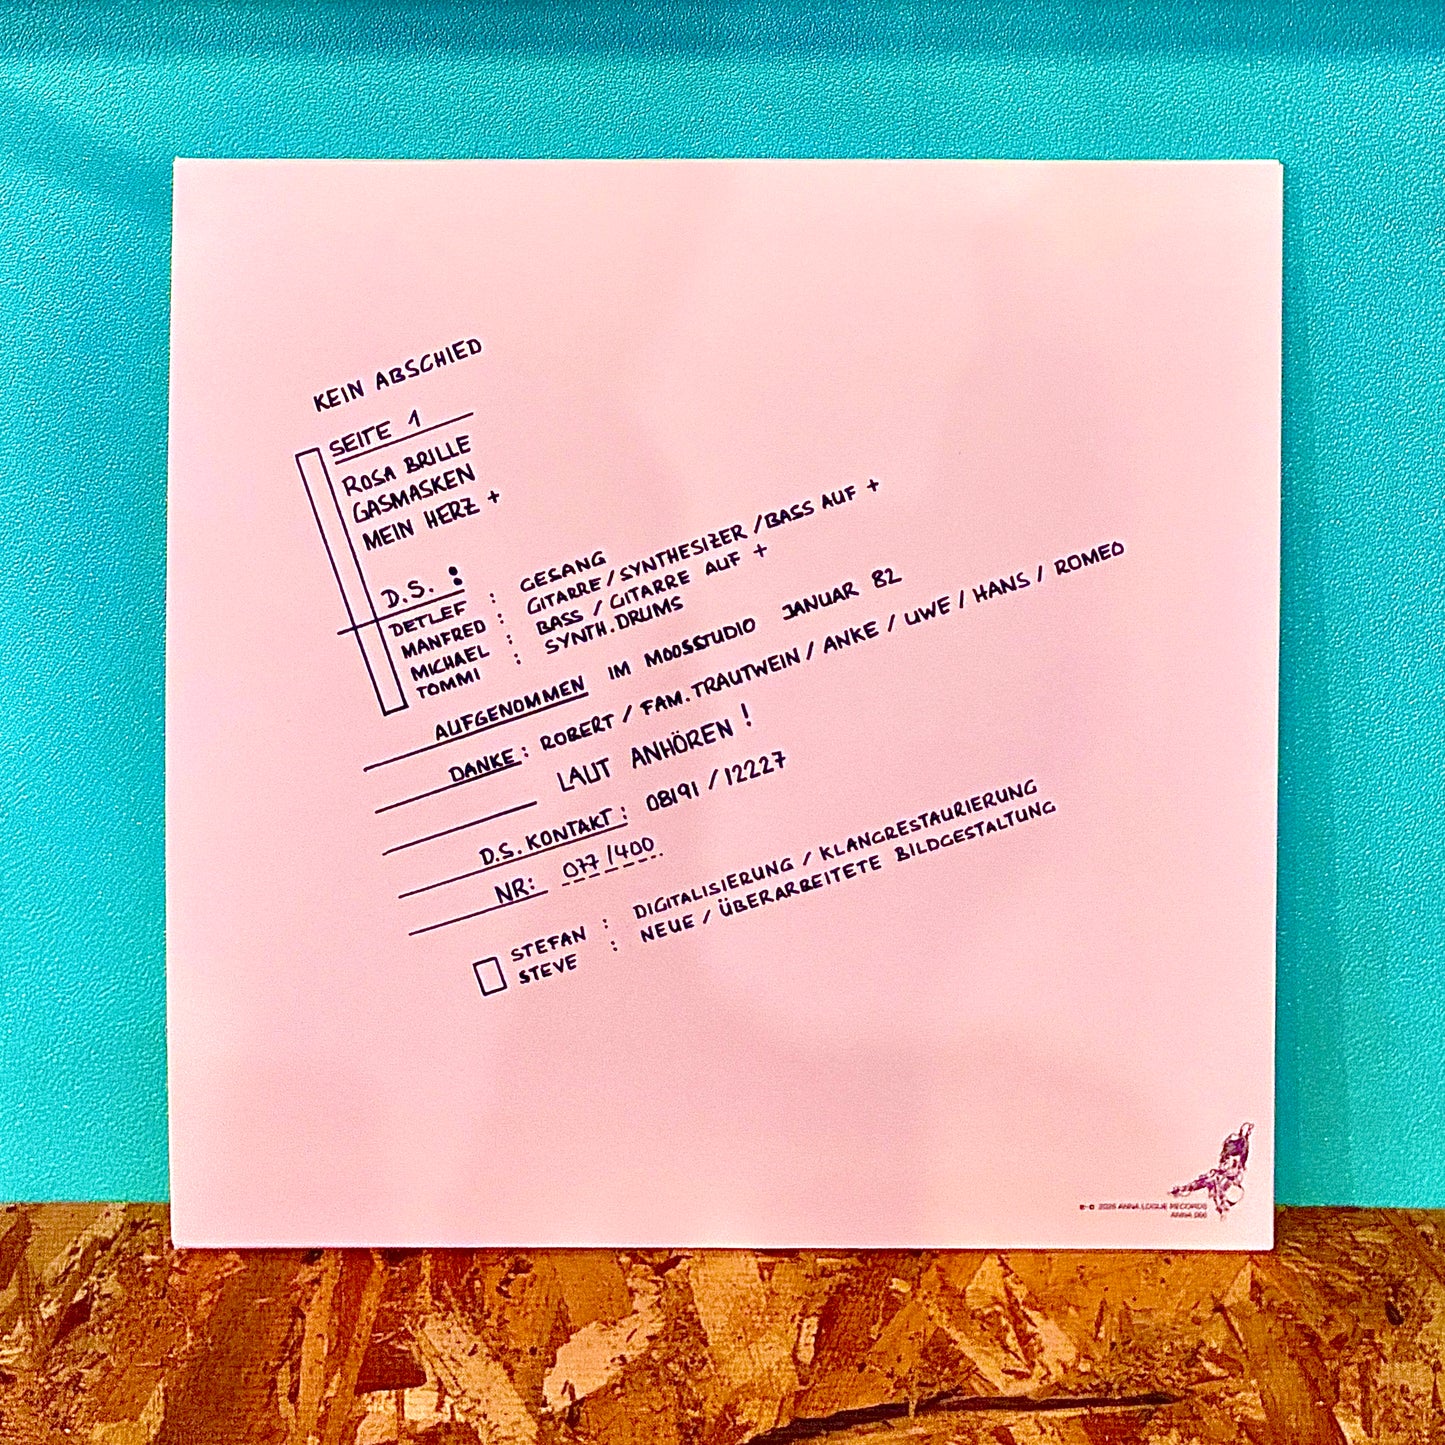 KEIN ABSCHIED
SEITE 1
ROSA BRILLE
GASMASKEN
MEIN HERZ +
D.S. :
DETLEF : GESANG
MANFRED : GITARRE / SYNTHESIZER / BASS AUF +
MICHAEL : BASS / GITARRE AUF +
TOMMI : SYNTH. DRUMS
AUFGENOMMEN IM MOOSSTUDIO JANUAR 82
DANKE : ROBERT / FAM. TRAUTWEIN / ANKE / UWE / HANS / ROMEO
LAUT ANHÖREN !
D.S. KONTAKT : 08191 / 12227
NR: 077 / 400
STEFAN : DIGITALISIERUNG / KLANGRESTAURIERUNG
STEVE : NEUE / ÜBERARBEITETE BILDGESTALTUNG
ANNA LOGUE RECORDS
ANNA